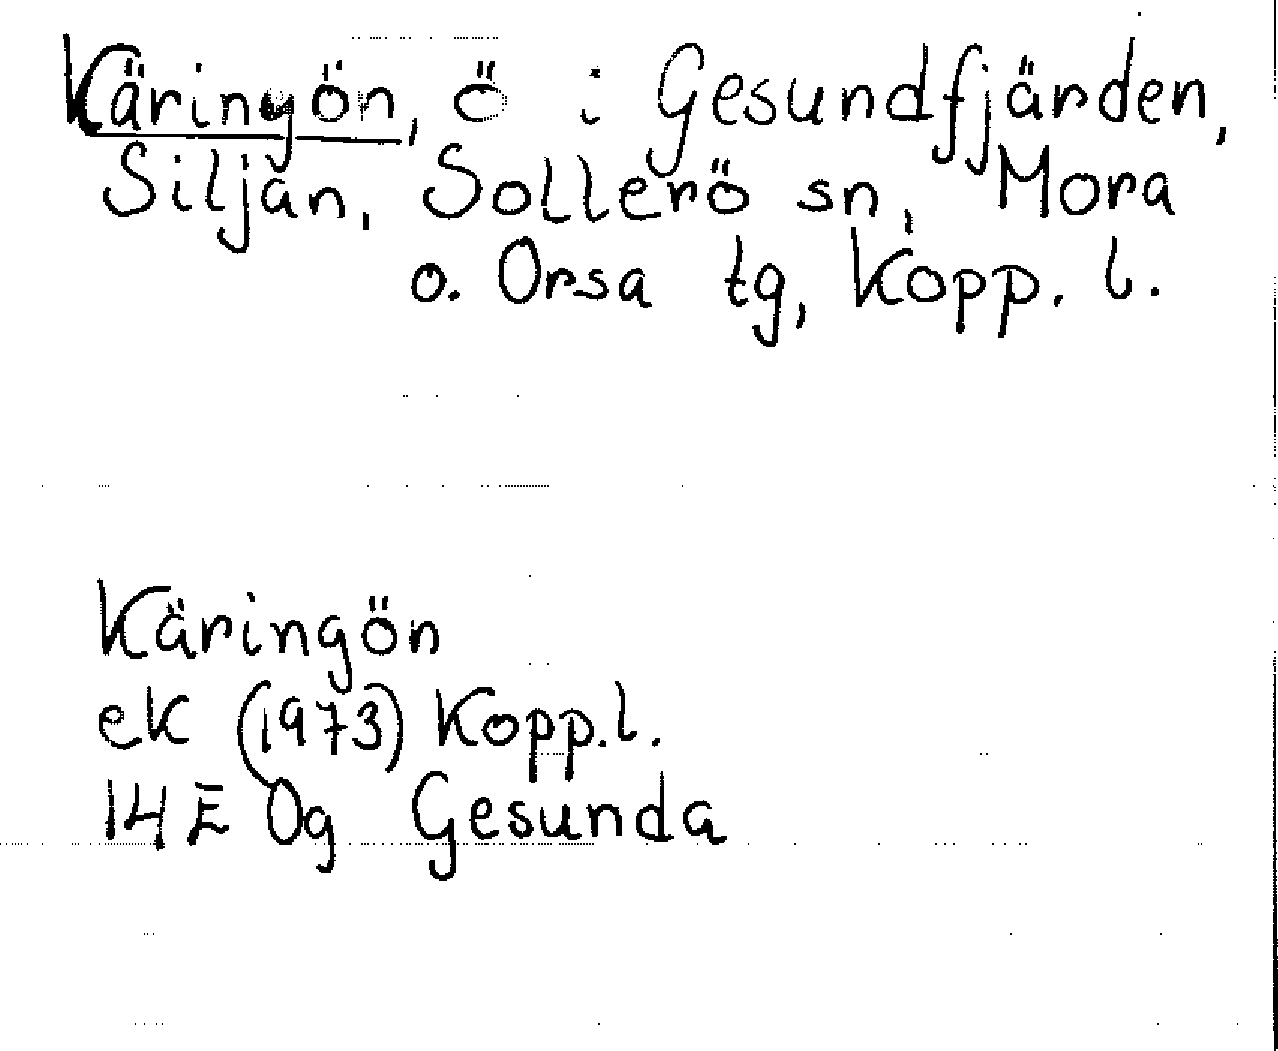 Käringön, ö i Gesundfjärden,
Siljan, Sollerö sn, Mora
o. Orsa tg, Kopp. l.
Käringön
ek (1973) Kopp.l.
14E 0g Gesunda